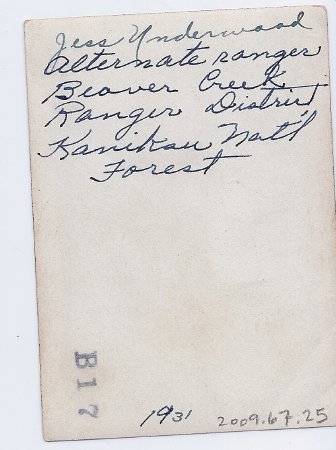 Jess Underwood
Alternate ranger
Beaver Creek
Ranger District
Kaniksu Nat'l
Forest
B17
1931
2009.67.25